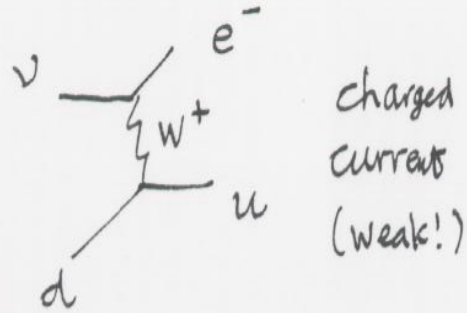 e⁻
ν
W⁺
u
d
charged
current
(weak!)